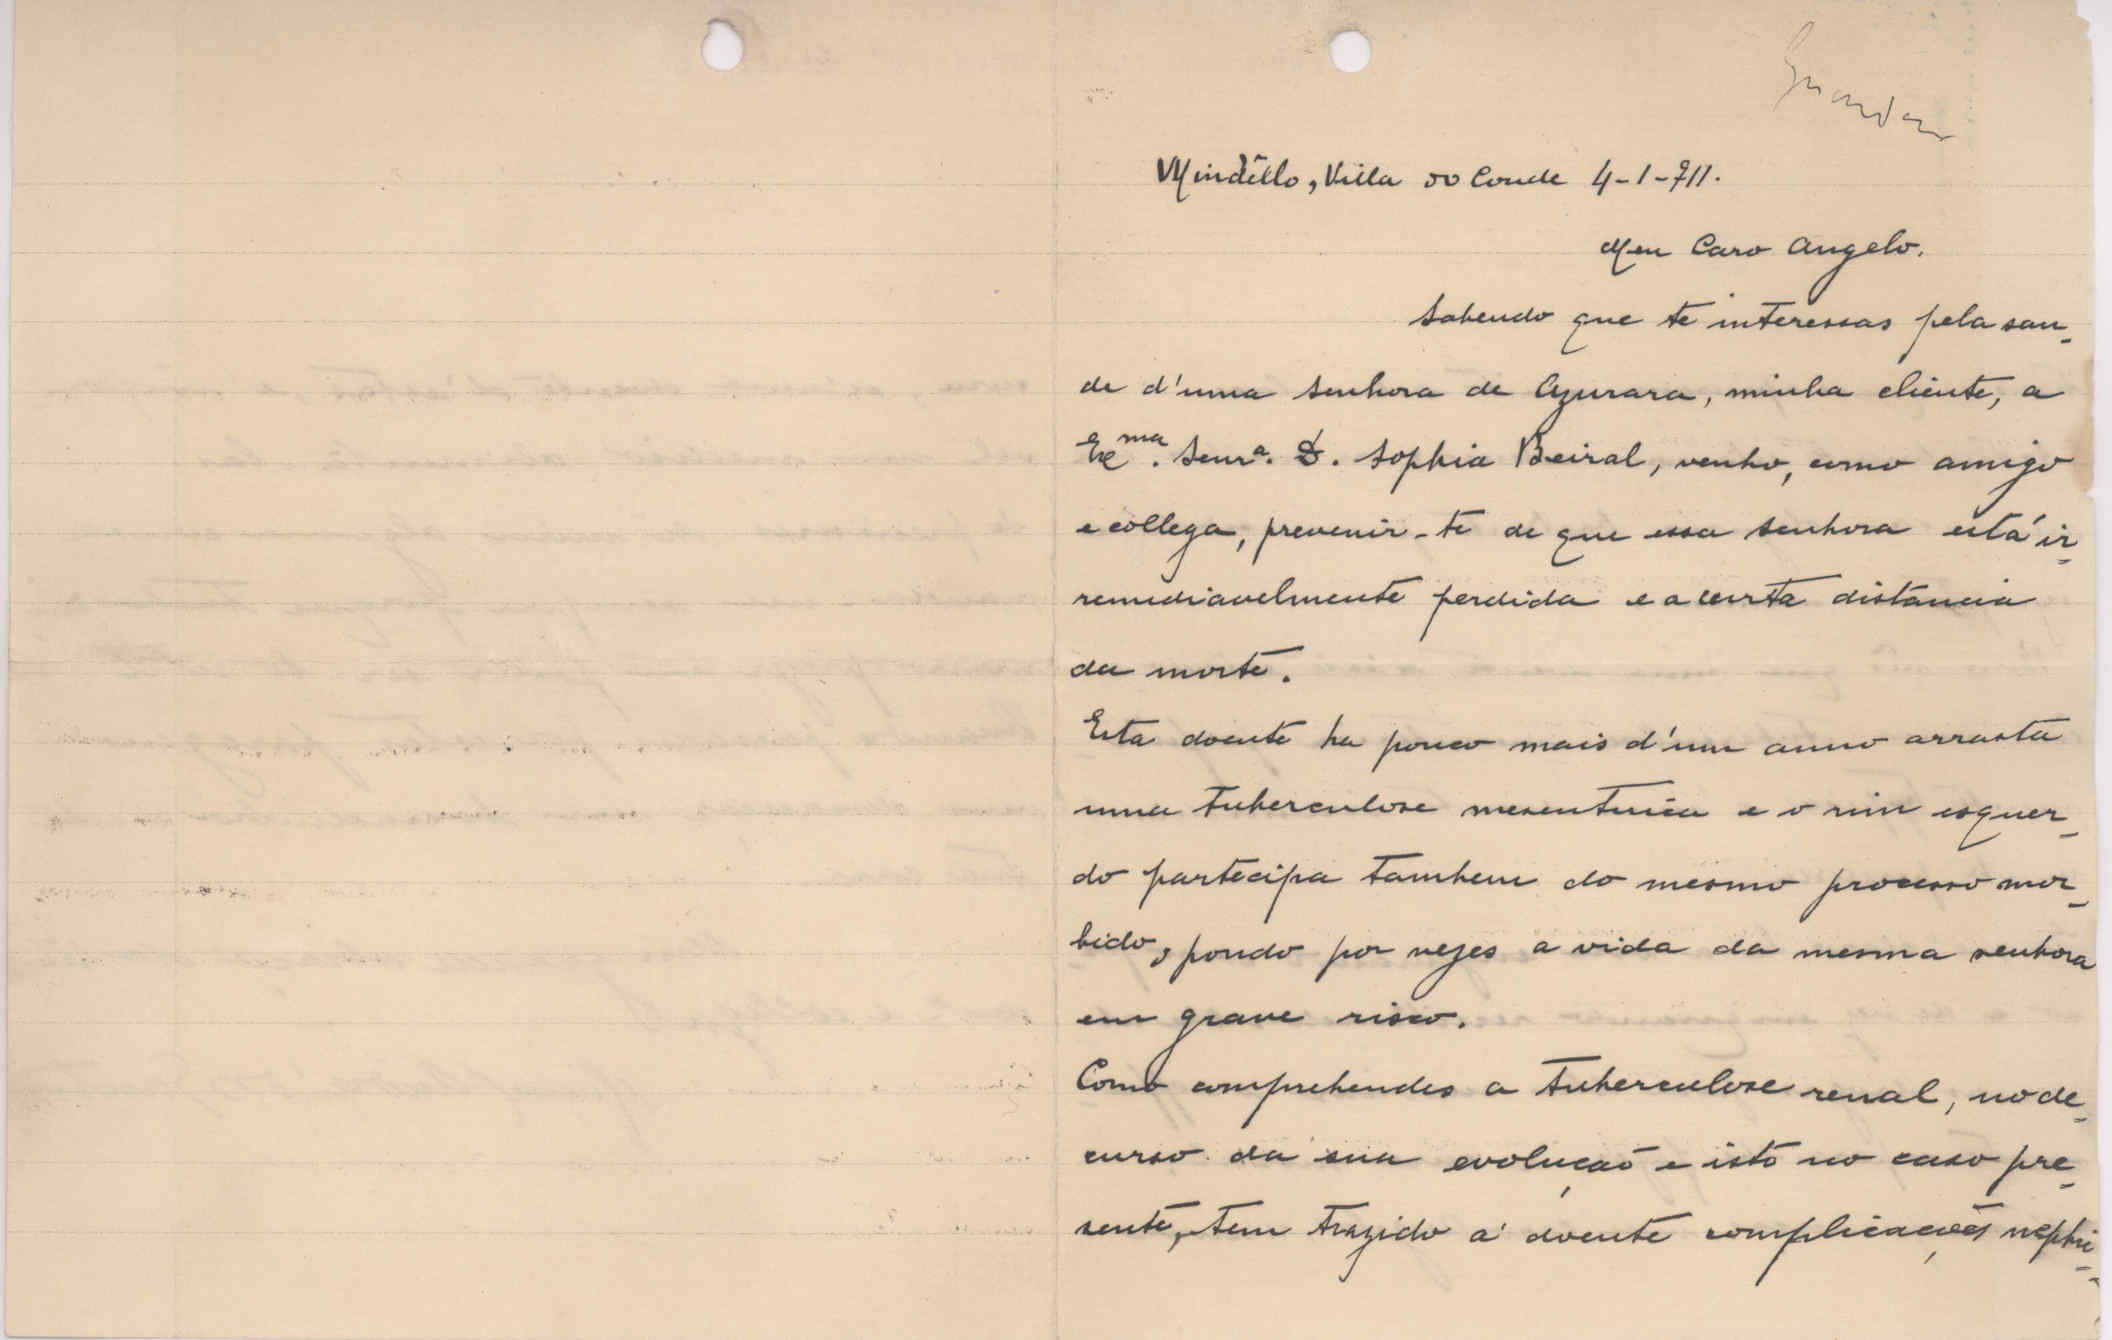 Guardar
Mindéllo, Villa do Conde 4-1-911.
Meu Caro Angelo.
Sabendo que te interessas pela sau-
de d'uma senhora de Azurara, minha cliente, a
Exma. Senra. D. Sophia Beiral, venho, como amigo
e collega, prevenir-te de que essa senhora está ir-
remediavelmente perdida e a curta distancia
da morte.
Esta doente ha pouco mais d'um anno arrasta
uma tuberculose mesenterica e o rim esquer-
do partecipa tambem do mesmo processo mor-
bido, pondo por vezes a vida da mesma senhora
em grave risco.
Como comprehendes a tuberculose renal, no de-
curso da sua evolução e isto no caso pre-
sente, tem trazido á doente complicações nephri-